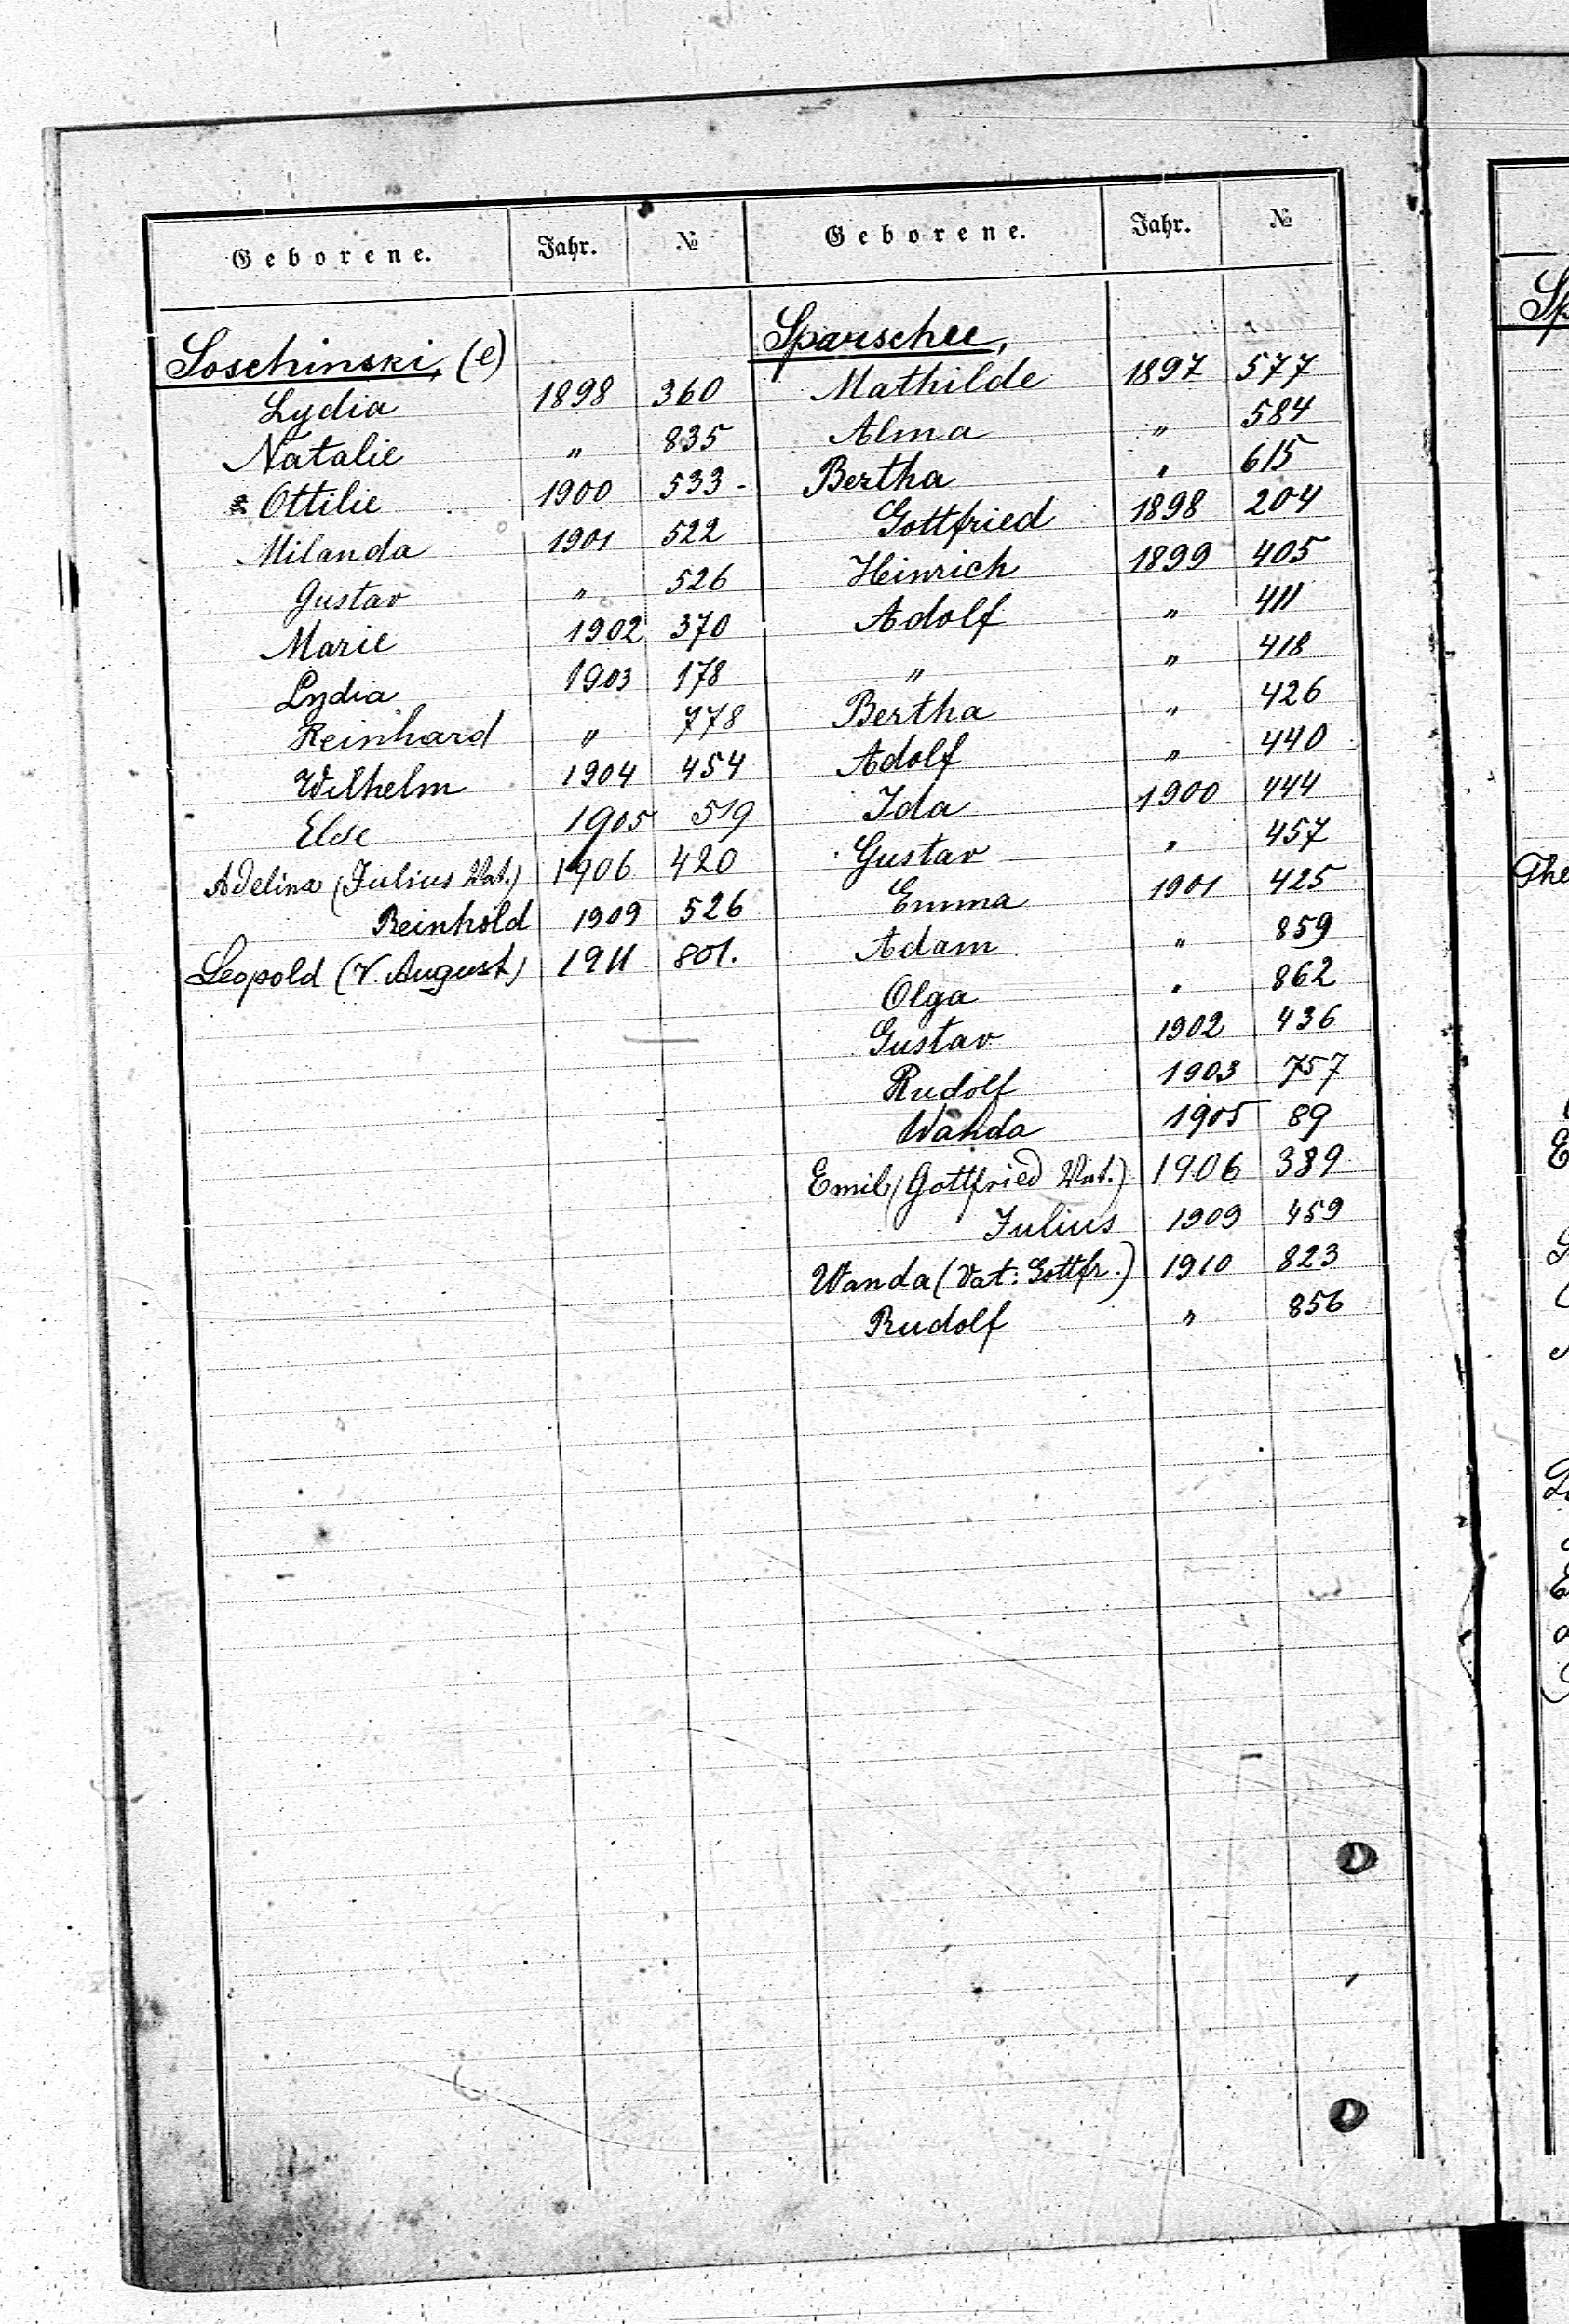 Geborene. Jahr. №
Soschinski, (e)
Lydia 1898 360
Natalie " 835
Ottilie 1900 533 -
Milanda 1901 522
Gustav " 526
Marie 1902 370
Lydia 1903 178
Reinhard " 778
Wilhelm 1904 454
Else 1905 519
Adelina (Julius Vat.) 1906 420
Reinhold 1909 526
Leopold (V. August) 1911 801.
Geborene. Jahr. №
Mathilde 1897 577
Alma " 584
Bertha " 615
Gottfried 1898 204
Heinrich 1899 405
Adolf " 411
" " 418
Bertha " 426
Adolf " 440
Ida 1900 444
Gustav " 457
Emma 1901 425
Adam " 859
Olga " 862
Gustav 1902 436
Rudolf 1903 757
Wanda 1905 89
Emil (Gottfried Vat.) 1906 389
Julius 1909 459
Wanda (Vat: Gottfr.) 1910 823
Rudolf " 856
Sp
The